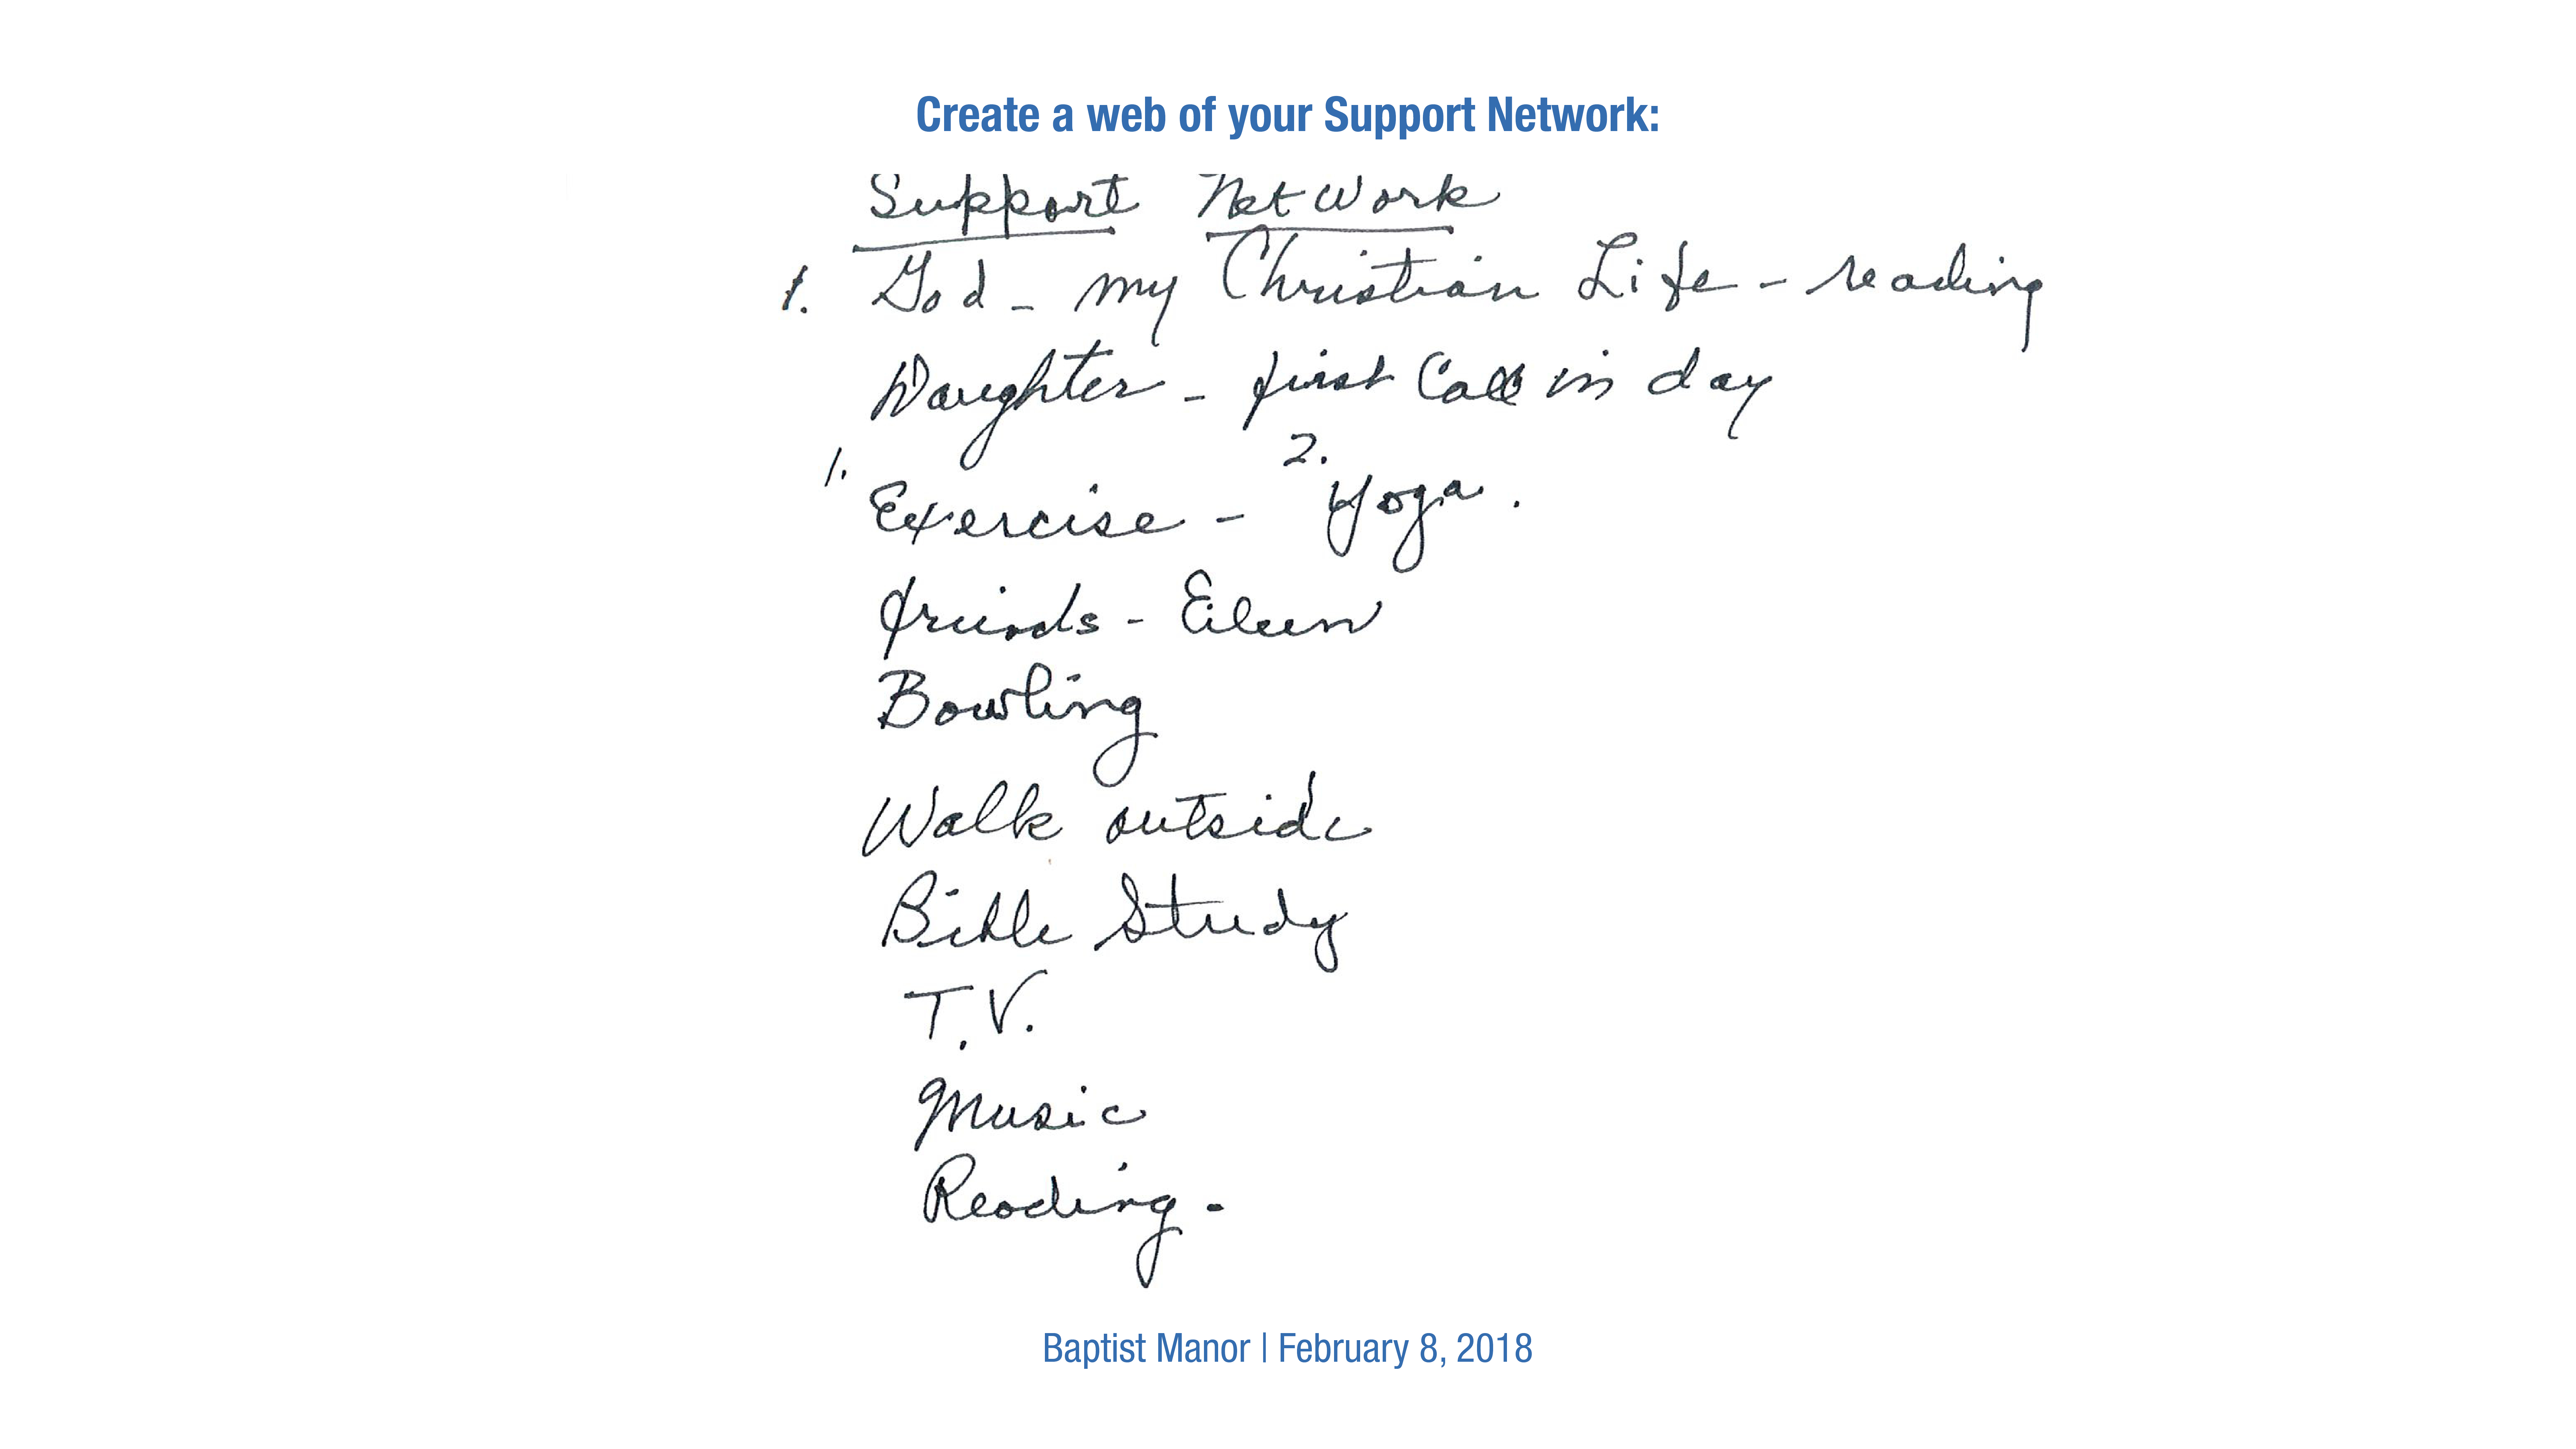 Create a web of your Support Network:
Support NetWork
1. God - my Christian Life - reading
Daughter - first Call in day
1. Exercise - 2. Yoga.
friends - Eileen
Bowling
Walk outside
Bible Study
T.V.
Music
Reading -
Baptist Manor | February 8, 2018